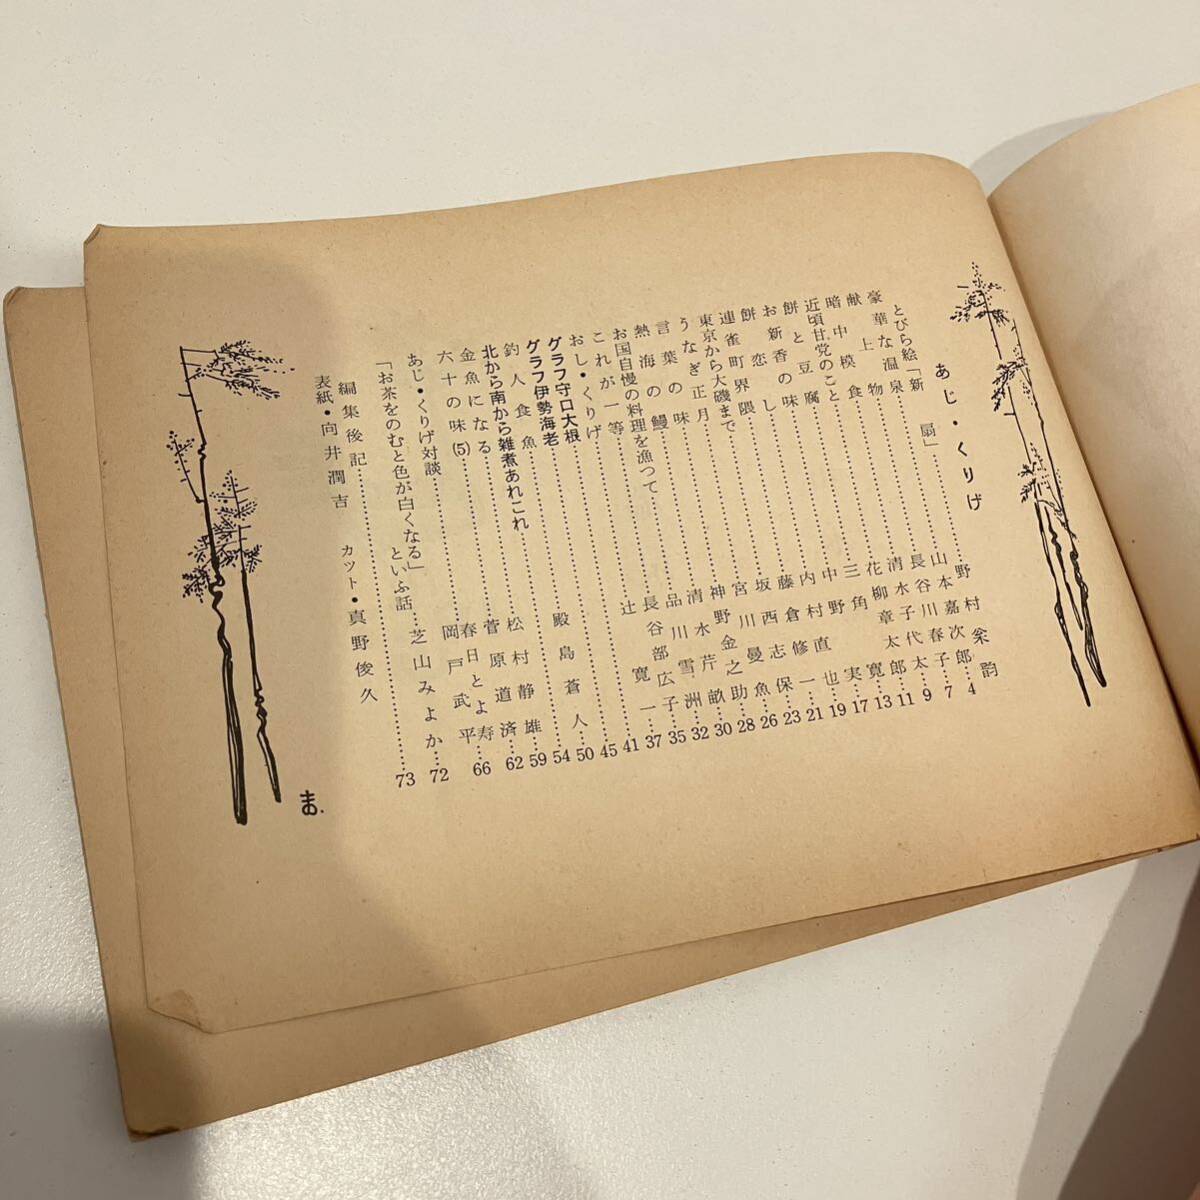 あじ・くりげ
とびら絵「新扇」……野村
豪華な温泉……山本嘉次郎…4
献上物……長谷川春子…7
暗中模食……清水千代太…9
近頃甘党のこと……花柳章太郎…11
餅と豆腐……三角寛…13
お新香の味……中野実…17
餅恋し……内村直也…19
連雀町界隈……藤倉修一…21
東京から大磯まで……坂西志保…23
うなぎ正月……宮川曼魚…26
言葉の味……神野金之助…28
熱海の鰻……清水芹畝…30
お国自慢の料理を漁つて……品川雪洲…32
これが一等……長谷部広子…35
おし・くりげ……辻寛一…37
グラフ守口大根……41
グラフ伊勢海老……45
釣人食魚……殿島蒼人…50
北から南から雑煮あれこれ……54
金魚になる……松村静雄…59
六十の味(5)……菅原道済…62
あじ・くりげ対談……春日とよ寿 66
岡戸武平
「お茶をのむと色が白くなる」といふ話……芝山みよか…72
編集後記……73
表紙・向井潤吉 カット・真野俊久